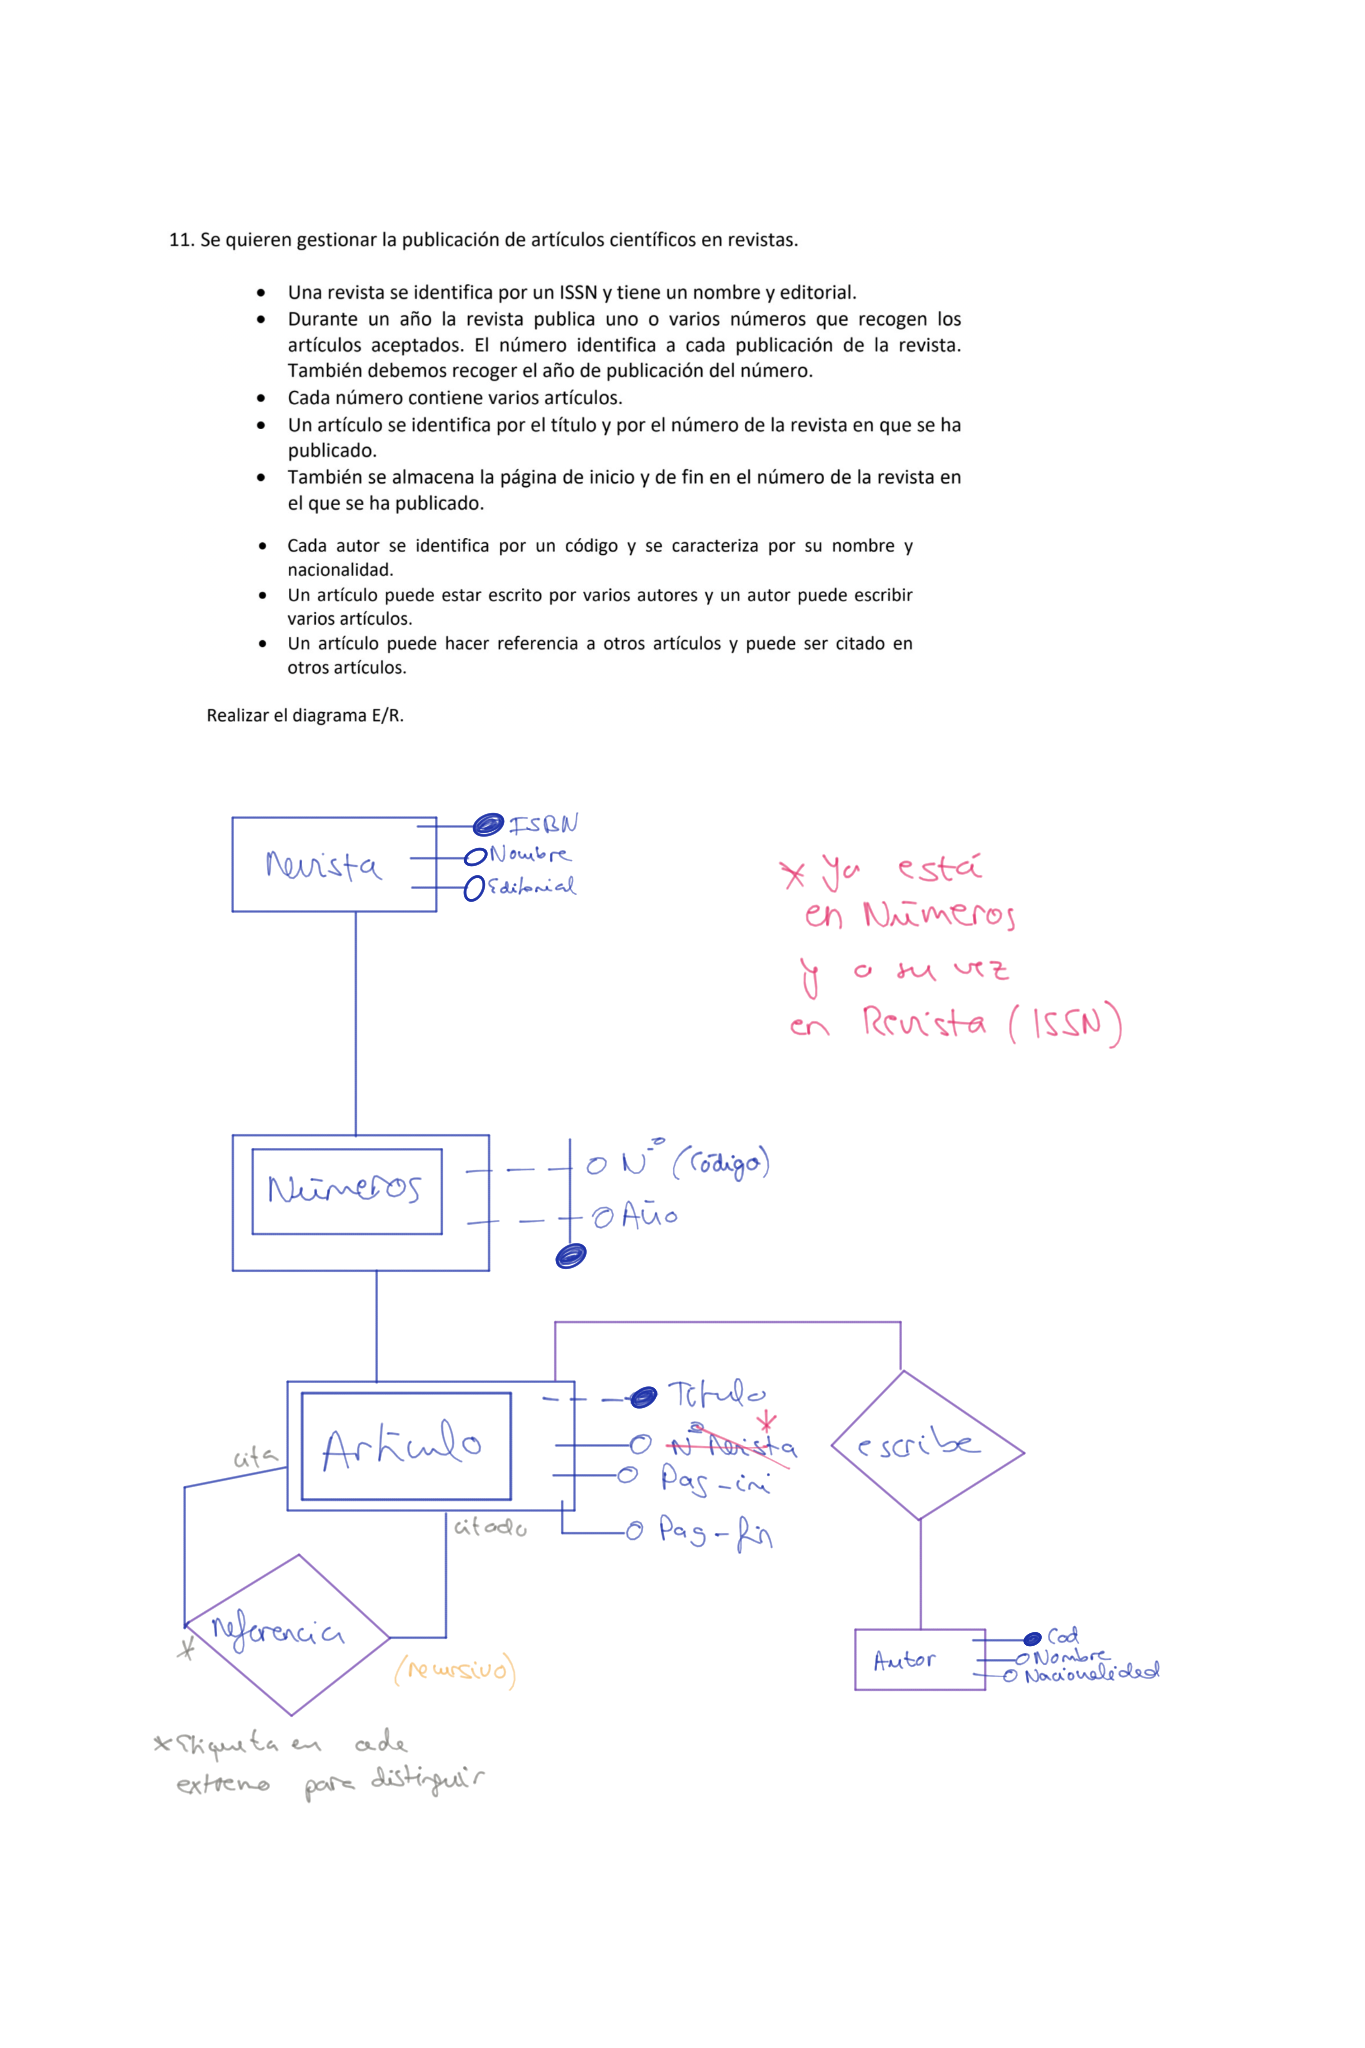 11. Se quieren gestionar la publicación de artículos científicos en revistas.
• Una revista se identifica por un ISSN y tiene un nombre y editorial.
• Durante un año la revista publica uno o varios números que recogen los
artículos aceptados. El número identifica a cada publicación de la revista.
También debemos recoger el año de publicación del número.
• Cada número contiene varios artículos.
• Un artículo se identifica por el título y por el número de la revista en que se ha
publicado.
• También se almacena la página de inicio y de fin en el número de la revista en
el que se ha publicado.
• Cada autor se identifica por un código y se caracteriza por su nombre y
nacionalidad.
• Un artículo puede estar escrito por varios autores y un autor puede escribir
varios artículos.
• Un artículo puede hacer referencia a otros artículos y puede ser citado en
otros artículos.
Realizar el diagrama E/R.
Revista
ISBN
Nombre
Editorial
* Ya está
en Números
y a su vez
en Revista (ISSN)
Números
Nº (Código)
Año
Artículo
Título
Nº Revista *
Pag-ini
Pag-fin
escribe
cita
citado
referencia
*
(recursivo)
Autor
Cod
Nombre
Nacionalidad
* Etiqueta en cada
extremo para distinguir